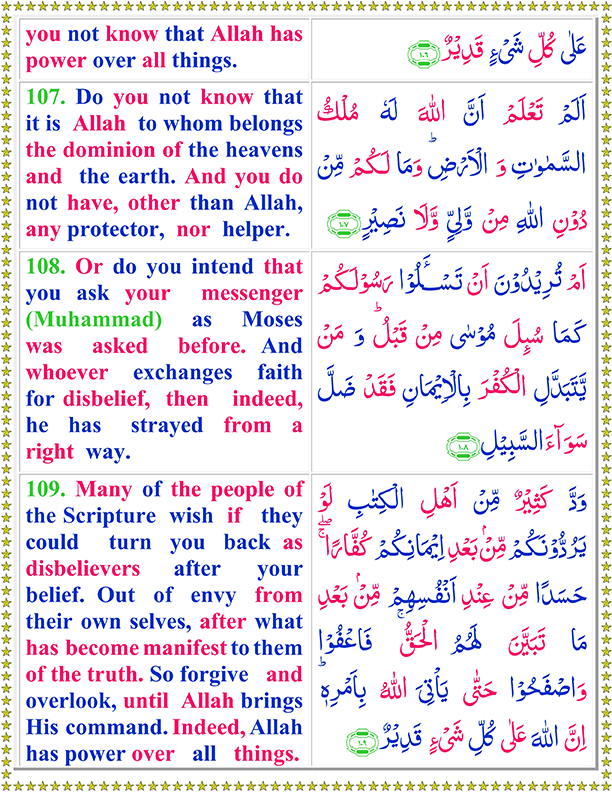 you not know that Allah has
power over all things.
عَلٰى كُلِّ شَیْءٍ قَدِيْرٌ ﴿١٠٦﴾
107. Do you not know that
it is Allah to whom belongs
the dominion of the heavens
and the earth. And you do
not have, other than Allah,
any protector, nor helper.
اَلَمْ تَعْلَمْ اَنَّ اللّٰهَ لَهٗ مُلْكُ
السَّمٰوٰتِ وَ الْاَرْضِ ؕ وَمَا لَكُمْ مِّنْ
دُوْنِ اللّٰهِ مِنْ وَّلِیٍّ وَّلَا نَصِيْرٍ ﴿١٠٧﴾
108. Or do you intend that
you ask your messenger
(Muhammad) as Moses
was asked before. And
whoever exchanges faith
for disbelief, then indeed,
he has strayed from a
right way.
اَمْ تُرِيْدُوْنَ اَنْ تَسْـَٔلُوْا رَسُوْلَكُمْ
كَمَا سُىِٕلَ مُوْسٰى مِنْ قَبْلُ ؕ وَ مَنْ
يَّتَبَدَّلِ الْكُفْرَ بِالْاِيْمَانِ فَقَدْ ضَلَّ
سَوَآءَ السَّبِيْلِ ﴿١٠٨﴾
109. Many of the people of
the Scripture wish if they
could turn you back as
disbelievers after your
belief. Out of envy from
their own selves, after what
has become manifest to them
of the truth. So forgive and
overlook, until Allah brings
His command. Indeed, Allah
has power over all things.
وَدَّ كَثِيْرٌ مِّنْ اَهْلِ الْكِتٰبِ لَوْ
يَرُدُّوْنَكُمْ مِّنْۢ بَعْدِ اِيْمَانِكُمْ كُفَّارًا ۖۚ
حَسَدًا مِّنْ عِنْدِ اَنْفُسِهِمْ مِّنْۢ بَعْدِ
مَا تَبَيَّنَ لَهُمُ الْحَقُّ ۚ فَاعْفُوْا
وَاصْفَحُوْا حَتّٰى يَاْتِیَ اللّٰهُ بِاَمْرِهٖ ؕ
اِنَّ اللّٰهَ عَلٰى كُلِّ شَیْءٍ قَدِيْرٌ ﴿١٠٩﴾